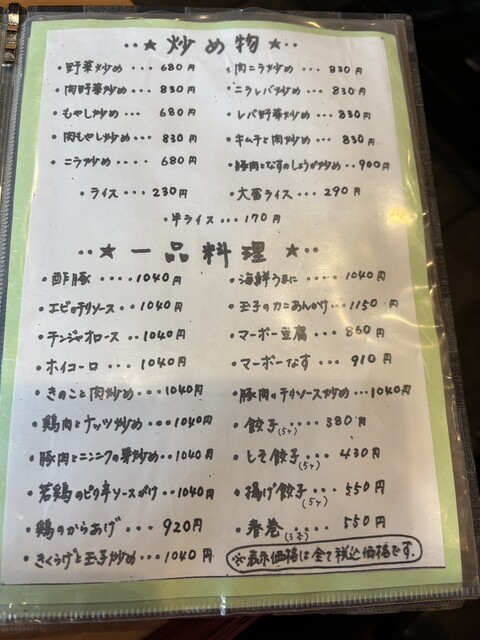 ・・★ 炒め物 ★・・
・野菜炒め・・・680円
・肉ニラ炒め・・・830円
・肉野菜炒め・・・830円
・ニラレバ炒め・・・830円
・もやし炒め・・・680円
・レバ野菜炒め・・・830円
・肉もやし炒め・・・830円
・キムチと肉炒め・・・830円
・ニラ炒め・・・・680円
・豚肉となすのしょうが炒め・・900円
・ライス・・・230円
・大盛ライス・・・290円
・半ライス・・・170円
・・★ 一品料理 ★・・
・酢豚・・・・1040円
・海鮮うまに・・・・1040円
・エビのチリソース・・1040円
・玉子のカニあんかけ・・・1150円
・チンジャオロース・・1040円
・マーボー豆腐・・・860円
・ホイコーロ・・・1040円
・マーボーなす・・・910円
・きのこと肉炒め・・・1040円
・豚肉のチリソース炒め・・1040円
・鶏肉とナッツ炒め・・・1040円
・餃子(5ヶ)・・・・380円
・豚肉とニンニクの芽炒め・・1040円
・しそ餃子(5ヶ)・・・430円
・若鶏のピリ辛ソースがけ・・1040円
・揚げ餃子(5ヶ)・・・550円
・鶏のからあげ・・・920円
・春巻(3本)・・・550円
・きくらげと玉子炒め・・・1040円
※表示価格は全て税込価格です。